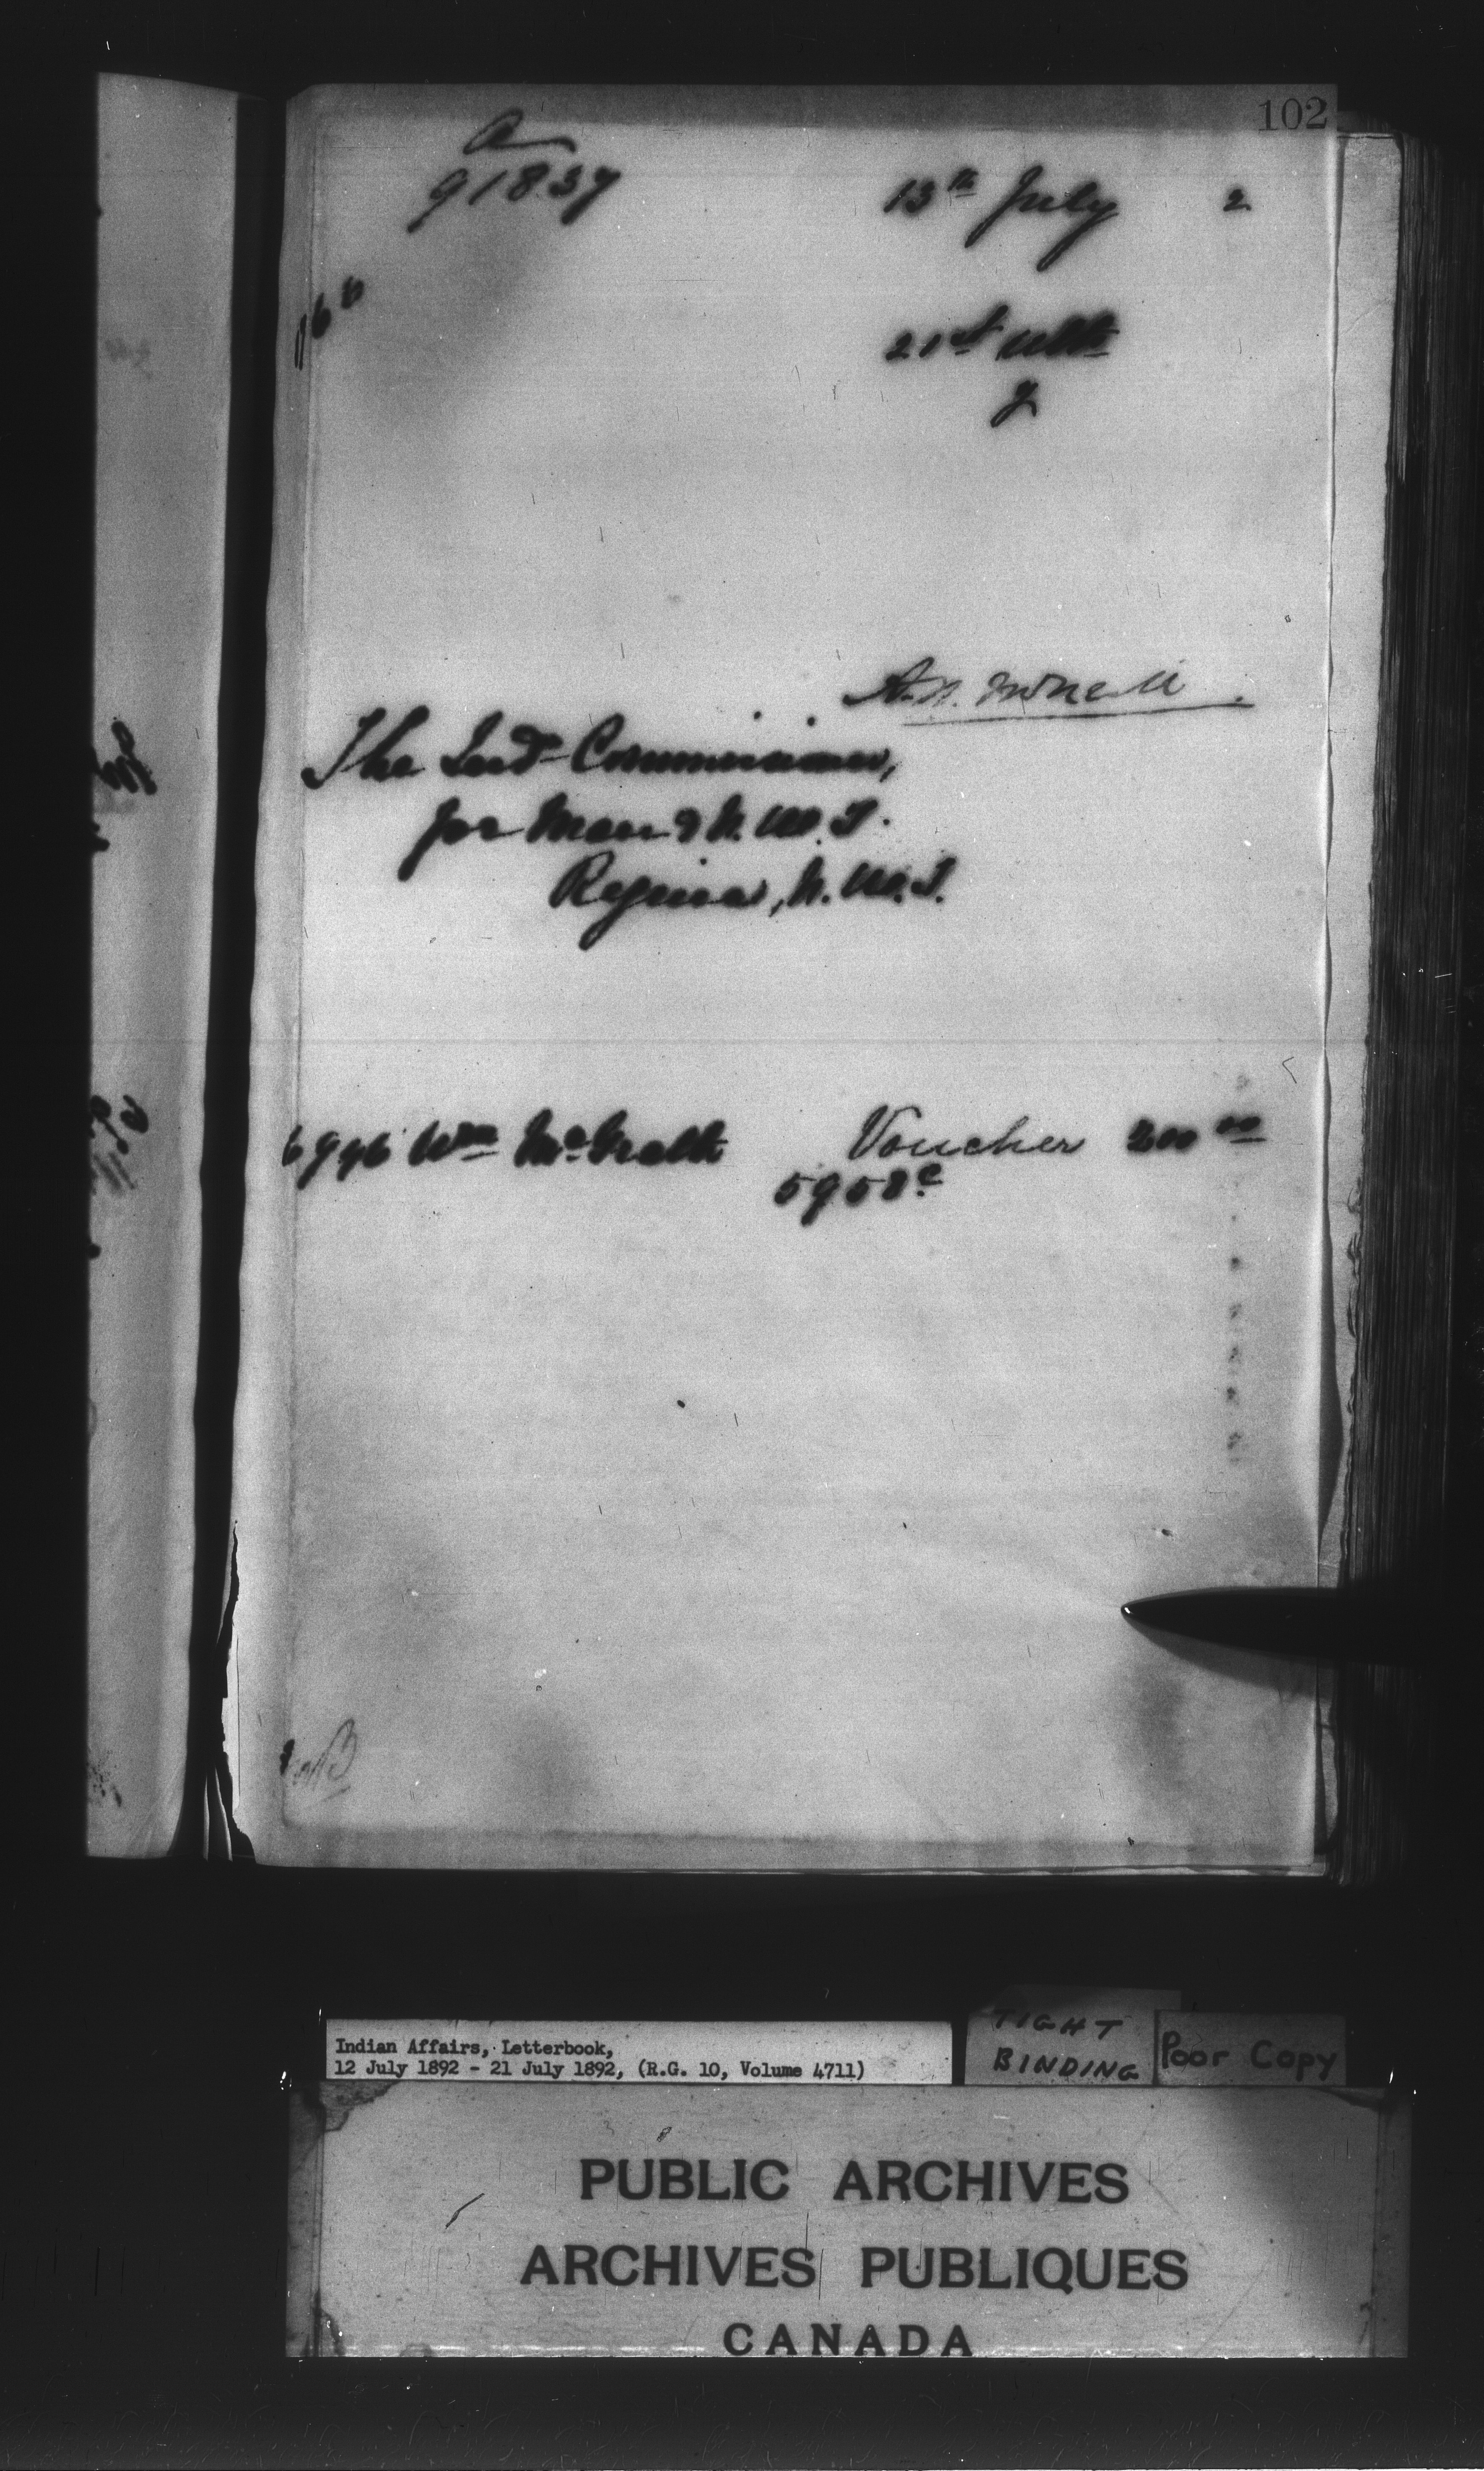 102
a
91837
13th July 2
166
21st Ulto
y
A.N. McNeill
The Ind Commissioner,
for Man & N.W.T.
Regina, N.W.T.
6996 Wm McGrath Voucher 200 00
5958c
Indian Affairs, Letterbook,
12 July 1892 - 21 July 1892, (R.G. 10, Volume 4711)
TIGHT
BINDING
Poor Copy
PUBLIC ARCHIVES
ARCHIVES PUBLIQUES
CANADA